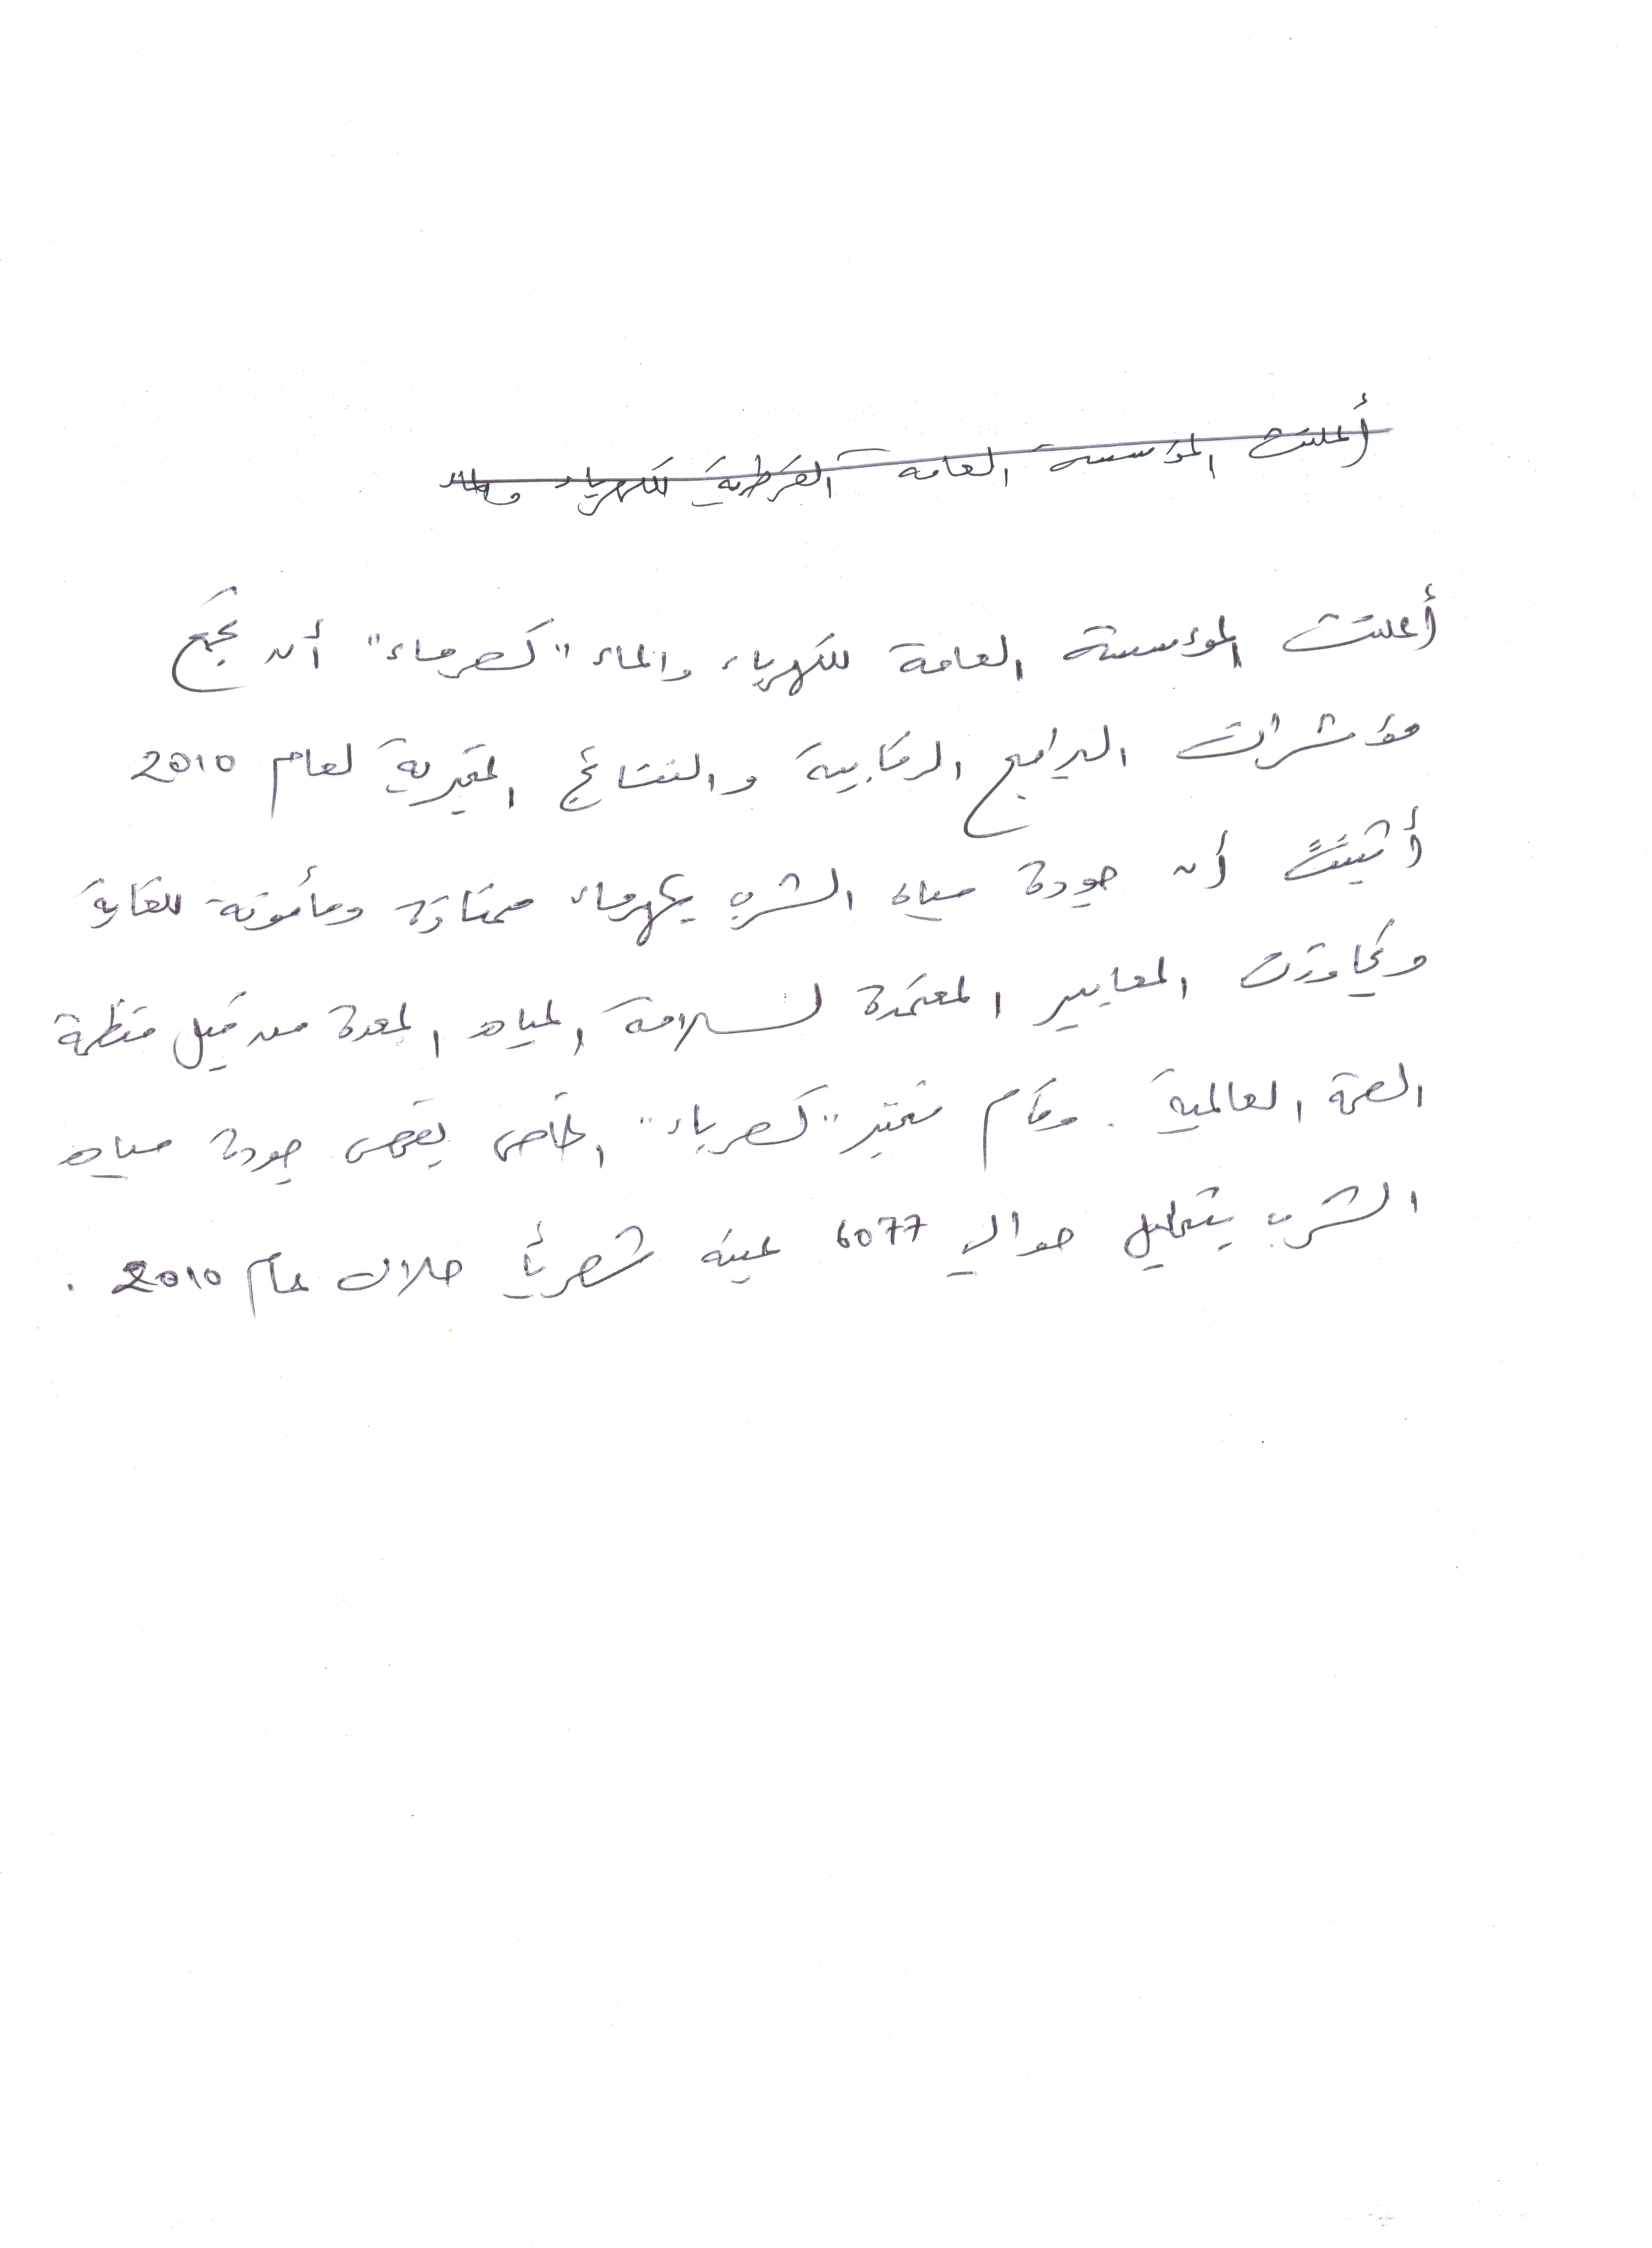 أعلنت المؤسسة العامة القطرية للكهرباء
أعلنت المؤسسة العامة للكهرباء والماء "كهرماء" أن جميع
مؤشرات البرامج الرقابية والنتائج المخبرية لعام 2010
أثبتت أن جودة مياه الشرب بكهرماء ممتازة ومأمونة للغاية
وتجاوزت المعايير المعتمدة لسلامة المياه المعدة من قبل منظمة
الصحة العالمية. وقام مختبر "كهرباء" الخاص بفحص جودة مياه
الشرب بتحليل حوالي 6077 عينة شهرياً خلال عام 2010 .